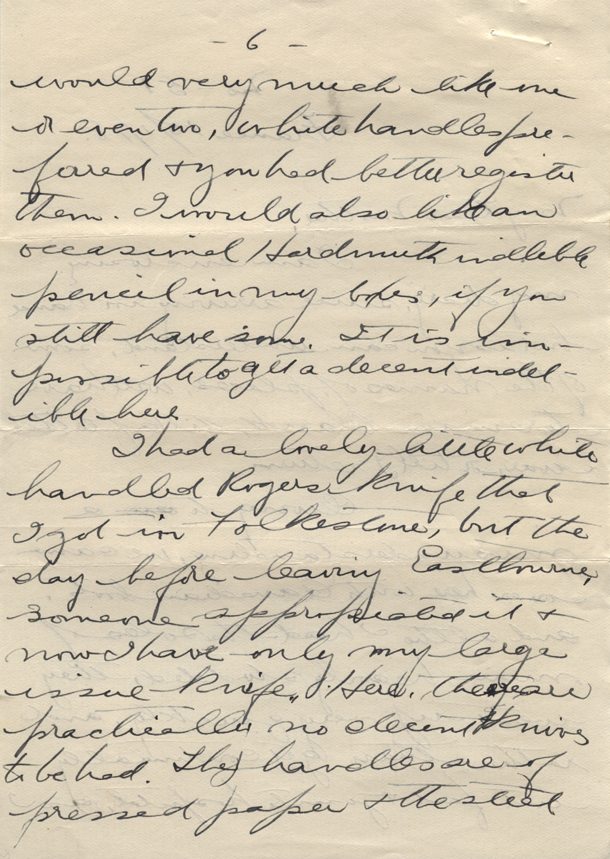 - 6 -
would very much like one
or even two, white handles pre-
ferred & you had better register
them. I would also like an
occasional Hardmuth indelible
pencil in my boxes, if you
still have some. It is im-
possible to get a decent indel-
ible here.
I had a lovely little white
handled Rogers knife that
I got in Folkestone, but the
day before leaving Eastbourne,
someone appropriated it &
now I have only my large
issue knife. Here, there are
practically no decent knives
to be had. They handles are of
pressed paper & the steel